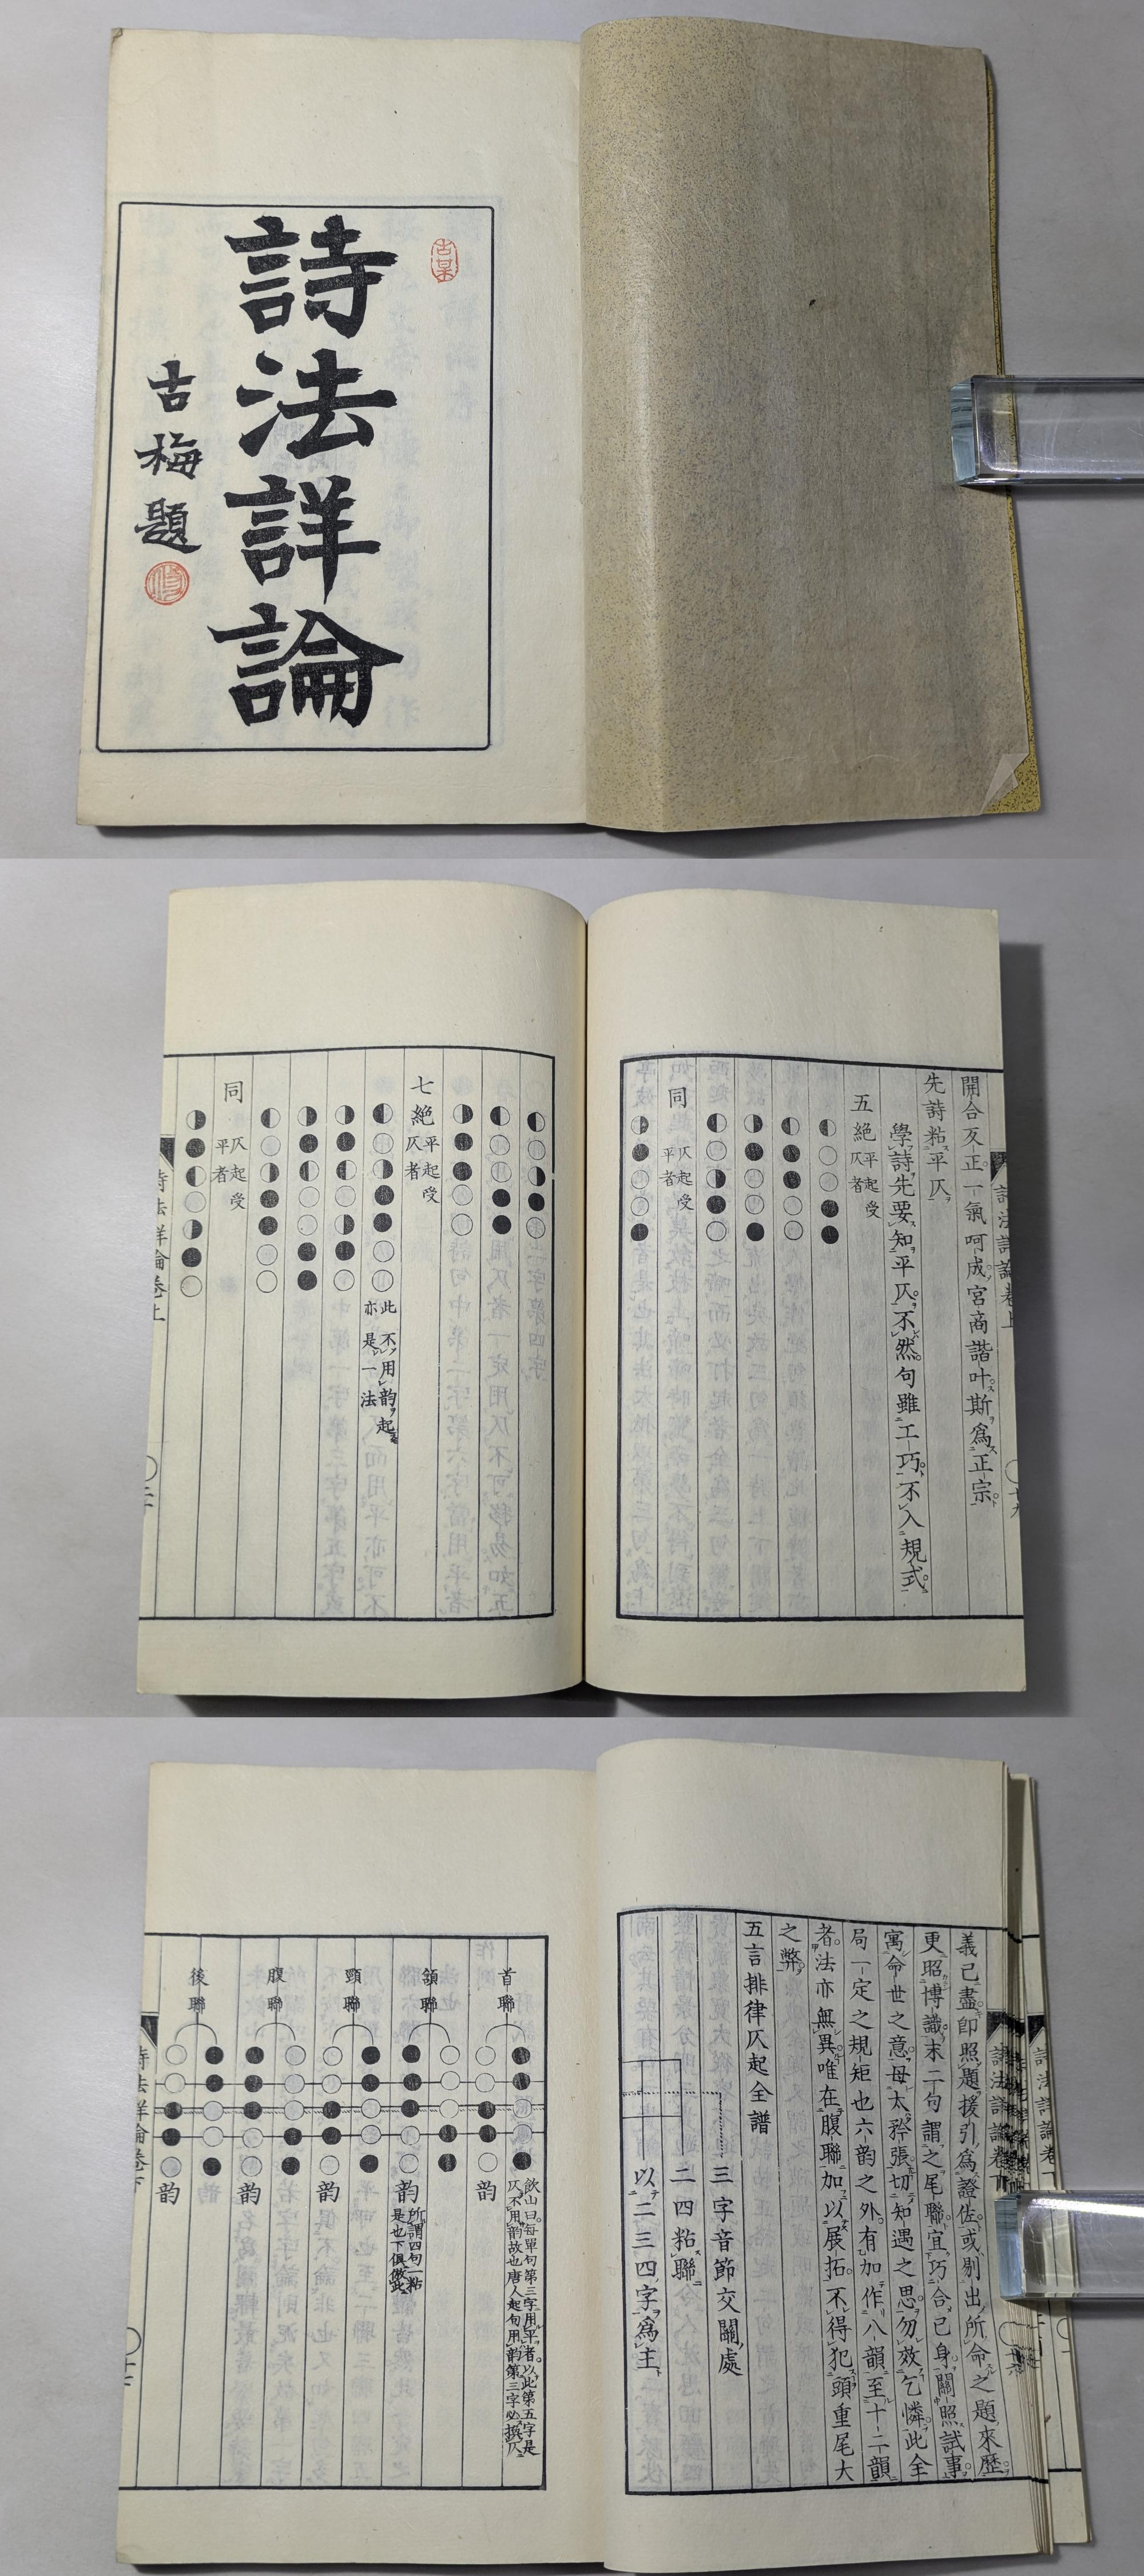 詩法詳論
古梅題
詩法詳論卷上
十九
開合反正一氣呵成宮商諧叶斯爲正宗
先詩粘平仄
學詩先要知平仄不然句雖工巧不入規式
五絕平起受仄者
同仄起受平者
七絕平起受仄者
此不用韵起亦是一法
同仄起受平者
詩法詳論卷上
二十
詩法詳論卷下
義已盡卽照題援引爲證佐或剔出所命之題來歷
更昭博識末二句謂之尾聯宜巧合己身關照試事
寓命世之意毋太矜張切知遇之思勿效乞憐此全
局一定之規矩也六韵之外有加作八韻至十二韻
者法亦無異唯在腹聯加以展拓不得犯頭重尾大
之弊
五言排律仄起全譜
三字音節交關處
二四粘聯
以二三四字爲主
首聯
韵
飲山曰每單句第三字用平者以此第五字是
仄不用韵故也唐人起句用韵第三字必撰仄
頷聯
韵
所謂四句一粘
是也下俱倣此
頸聯
韵
腹聯
韵
後聯
韵
詩法詳論卷下
十七